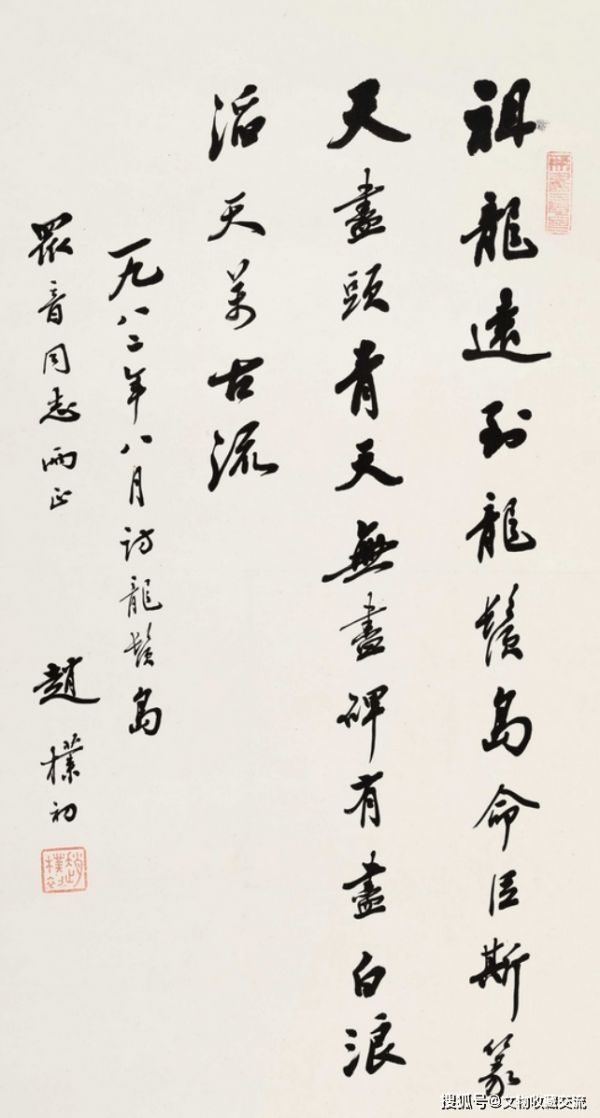 祖龍遠到龍鬚島命臣斯篆
天盡頭青天無盡碑有盡白浪
滔天萬古流
一九八二年八月訪龍鬚島
眾音同志兩正
趙樸初
趙樸初
搜狐号@文物收藏交流